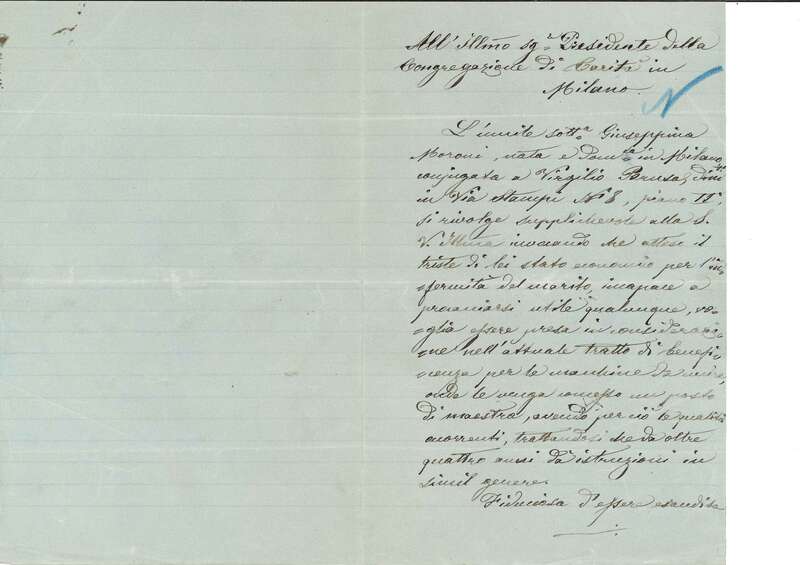 All' Illmo sgr. Presidente della
Congregazione di Carità in
Milano.
N
L'umile sotta. Giuseppina
Moroni, nata e doma. in Milano,
conjugata a Virgilio Brusa, dimte
in Via Stampi No 8, piano IIo,
si rivolge supplichevole alla S.
V. Illma invocando che atteso il
triste di lei stato economico per l'in=
=fermità del marito, incapace a
procaciarsi utile qualunque, vo=
=glia essere presa in considerazio
=ne nell'attuale tratto di benefi=
=cenza per le machine da cucire,
onde le venga concesso un posto
di maestra, avendo perciò le qualità
ocorrenti, trattandosi che da oltre
quattro anni dà istruzioni in
simil genere.
Fiduciosa d'essere esaudita